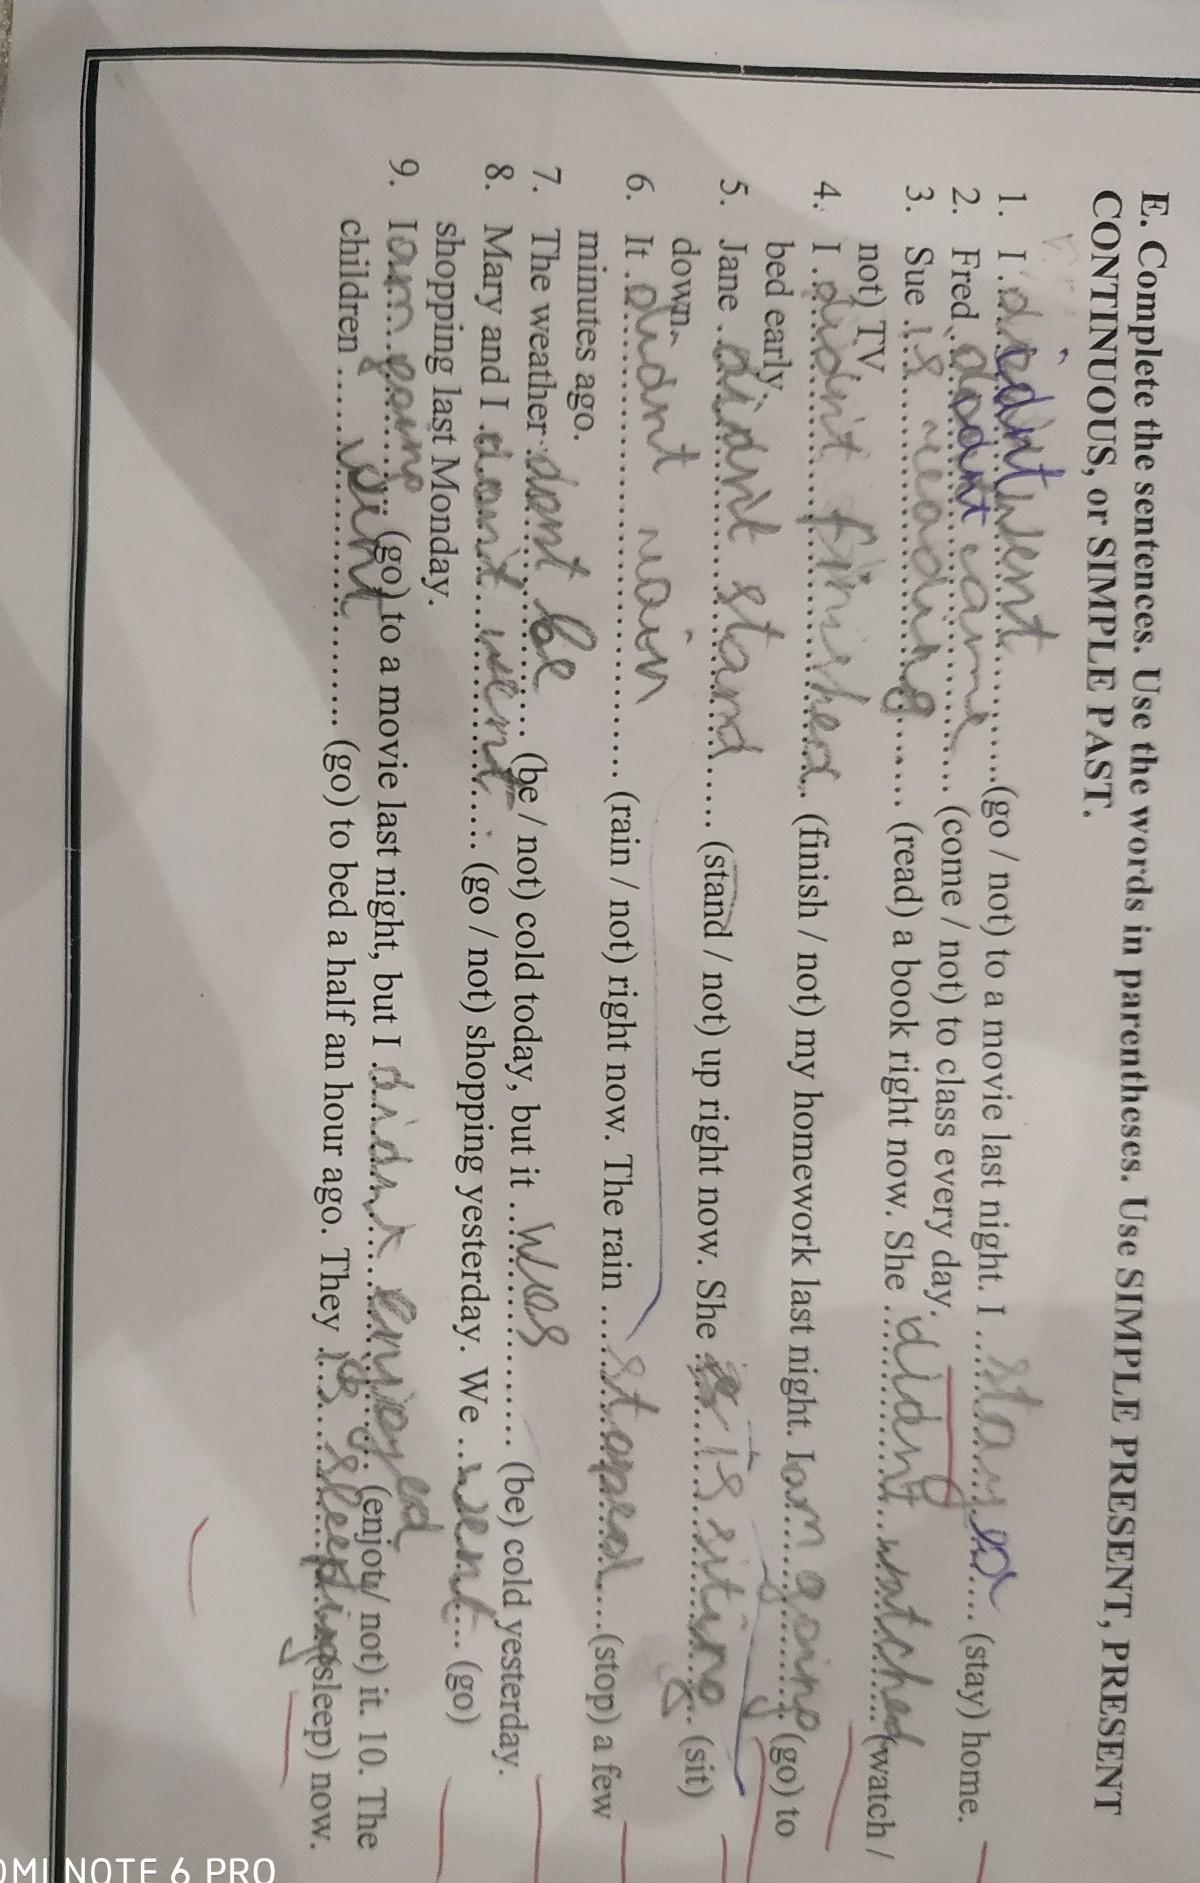 E. Complete the sentences. Use the words in parentheses. Use SIMPLE PRESENT, PRESENT
CONTINUOUS, or SIMPLE PAST.
1. I didnt went (go / not) to a movie last night. I stayed (stay) home.
2. Fred dodnt came (come / not) to class every day.
3. Sue is reading (read) a book right now. She didnt watched (watch /
not) TV
4. I didn't finished (finish / not) my homework last night. I am going (go) to
bed early.
5. Jane didn't stand (stand / not) up right now. She is siting (sit)
down.
6. It didnt rain (rain / not) right now. The rain stoped (stop) a few
minutes ago.
7. The weather dont be (be / not) cold today, but it wes (be) cold yesterday.
8. Mary and I don't went (go / not) shopping yesterday. We went (go)
shopping last Monday.
9. I am going (go) to a movie last night, but I didnt enjoyed (enjoy / not) it. 10. The
children (go) to bed a half an hour ago. They is sleeping (sleep) now.
MI NOTE 6 PRO